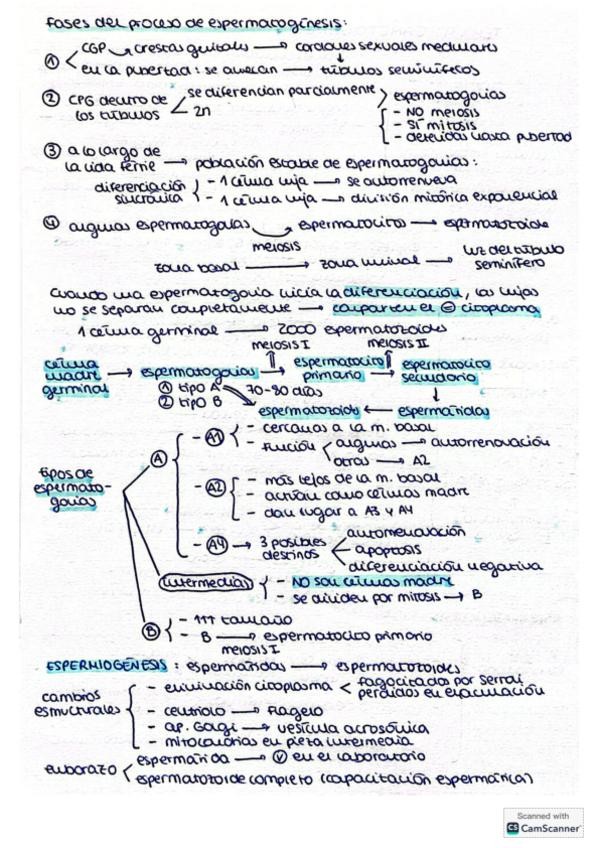 Fases del proceso de espermatogénesis:
① CGP → crestas genitales → cordones sexuales medulares
↓
en la pubertad: se ahuecan → túbulos seminíferos
② CPG dentro de los túbulos < se diferencian parcialmente > espermatogonias
2n
- NO meiosis
- SÍ mitosis
- detenidas hasta pubertad
③ a lo largo de la vida fértil → población estable de espermatogonias:
diferenciación sincrónica { - 1 célula hija → se autorrenueva
- 1 célula hija → división mitótica exponencial
④ algunas espermatogonias → espermatocitos → espermatozoide
meiosis
zona basal → zona luminal → luz del túbulo seminífero
Cuando una espermatogonia inicia la diferenciación, las hijas
no se separan completamente → comparten el ⊖ citoplasma
1 célula germinal → 2000 espermatozoides
MEIOSIS I MEIOSIS II
célula madre germinal → espermatogonias → espermatocito primario → espermatocito secundario
① tipo A
② tipo B
70-80 días
↓
espermatozoide ← espermátidas
tipos de espermatogonias
Ⓐ
- A1 { - cercanas a la m. basal
- función < algunas → autorrenovación
otras → A2
- A2 { - más lejos de la m. basal
- actúan como células madre
- dan lugar a A3 y A4
- A4 → 3 posibles destinos < autorrenovación
apoptosis
diferenciación negativa
Intermedias { - NO son células madre
- se dividen por mitosis → B
Ⓑ { - ↑↑↑ tamaño
- B → espermatocito primario
meiosis I
ESPERMIOGÉNESIS: espermátidas → espermatozoides
cambios estructurales { - eliminación citoplasma < fagocitados por Sertoli
perdidos en eyaculación
- centriolo → flagelo
- ap. Golgi → vesícula acrosómica
- mitocondrias en pieza intermedia
embarazo < espermátida → Ⓥ en el laboratorio
espermatozoide completo (capacitación espermática)
Scanned with
CS CamScanner